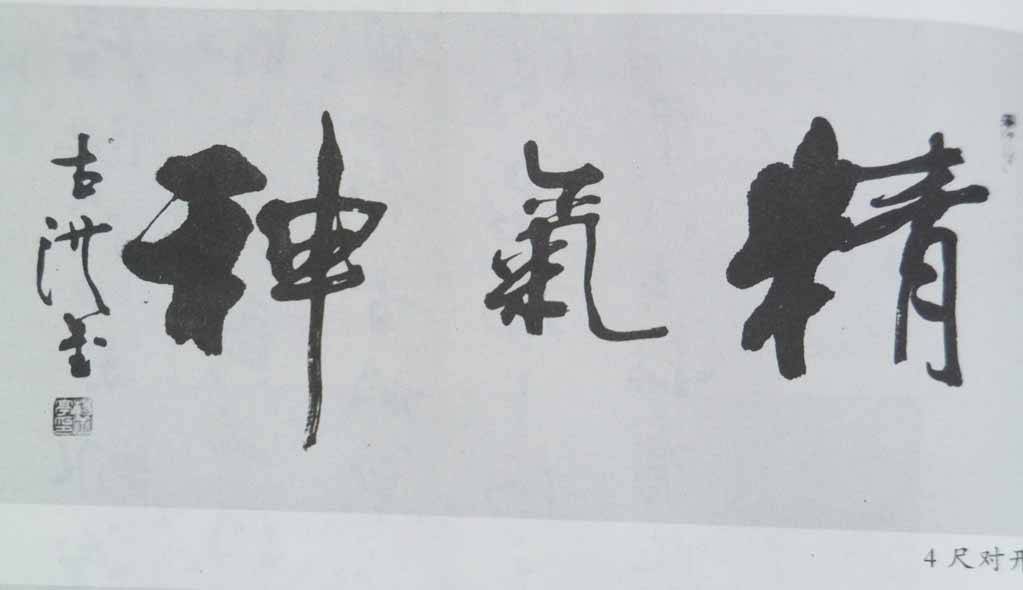 精氣神
古洪書
4尺对开